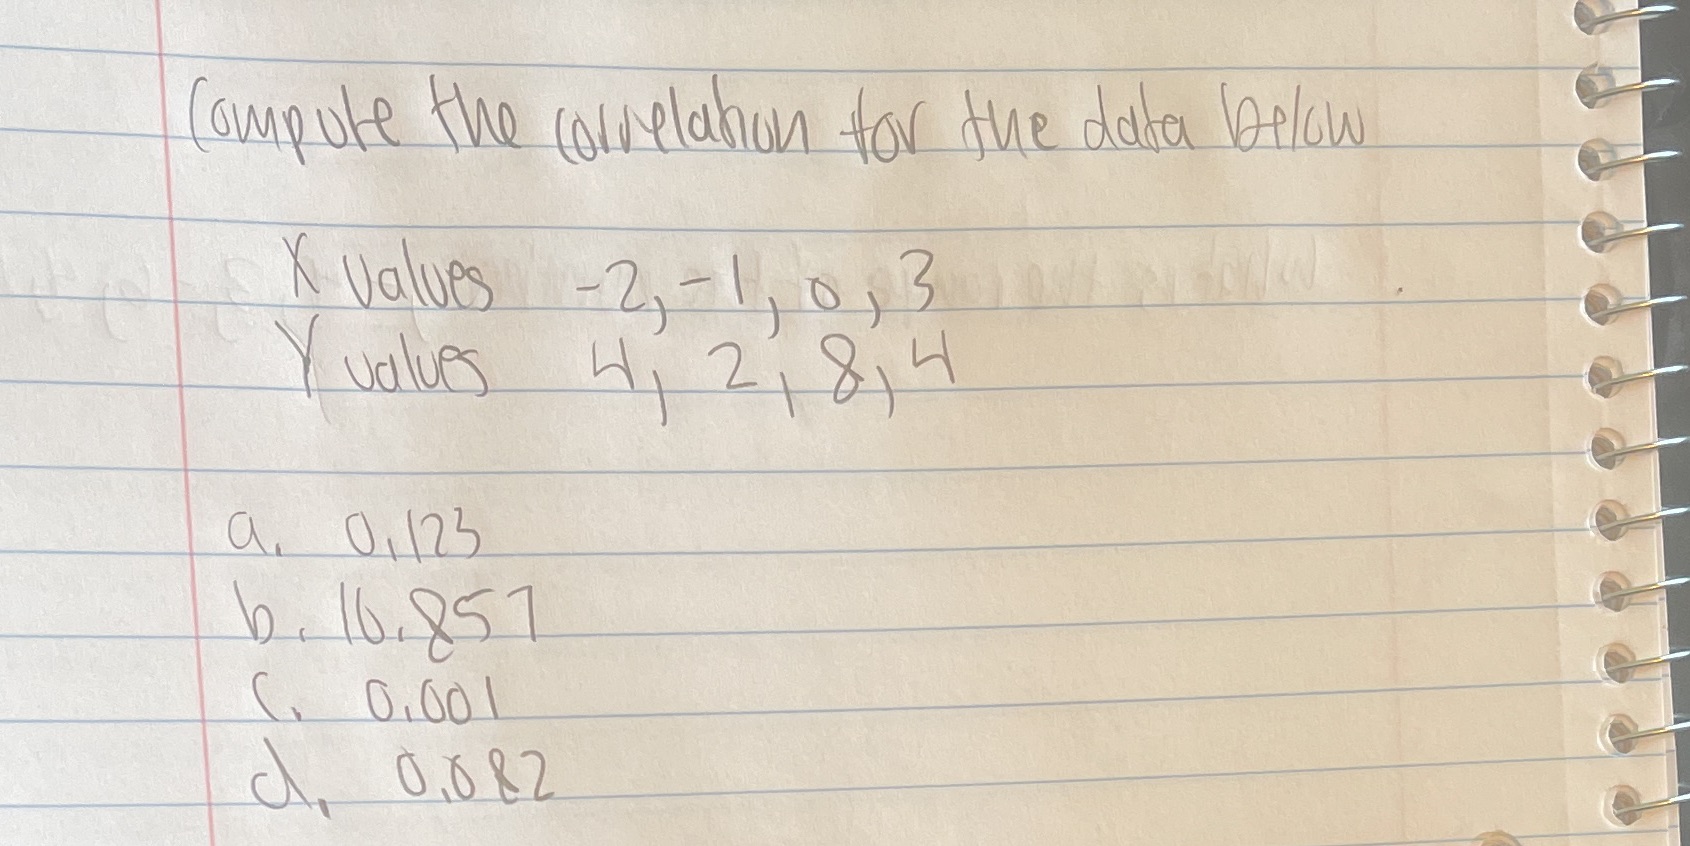 Compute the correlation for the data below
X values -2, -1, 0, 3
Y values 4, 2, 8, 4
a. 0.123
b. 16.857
c. 0.001
d. 0.082